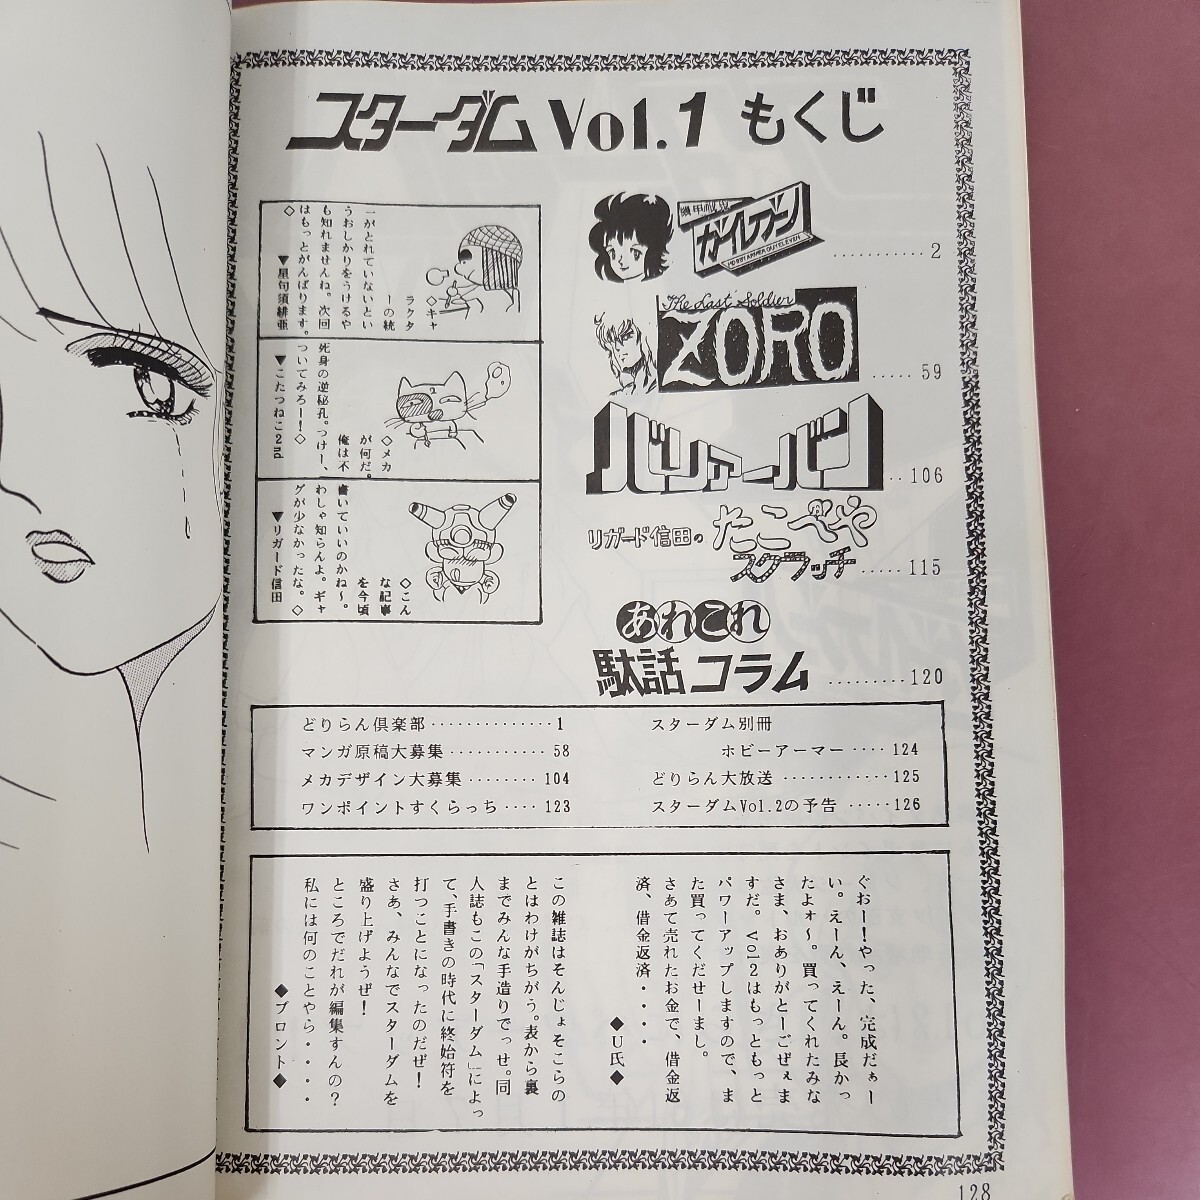 スターダム Vol.1 もくじ
ガイレアン
2
The Last Soldier
ZORO
59
バリアーバン
106
リガード信田の たこべや
スクラッチ
115
あれこれ
駄話コラム
120
◇キャ
ラクタ
ーの統
一がとれていないとい
うおしかりをうけるや
も知れませんね。次回
はもっとがんばります。
◇
▼星句須緋亜
◇メカ
が何だ。
俺は不
死身の逆秘孔。つけー、
ついてみろー!◇
▼こたつねこ2nd
◇こん
な記事
を今頃
書いていいのかね〜。
わしゃ知らんよ。ギャ
グが少なかったな。◇
▼リガード信田
どりらん倶楽部‥‥‥‥‥‥‥1
マンガ原稿大募集‥‥‥‥‥‥58
メカデザイン大募集‥‥‥‥104
ワンポイントすくらっち‥‥123
スターダム別冊
ホビーアーマー‥‥124
どりらん大放送‥‥‥‥‥‥125
スターダムVol.2の予告‥‥‥126
ぐおー!やった、完成だぁー
い。えーん、えーん。長かっ
たよォ〜。買ってくれたみな
さま、おありがとーごぜぇま
すだ。Vol2はもっともっと
パワーアップしますので、ま
た買ってくだせーまし。
さあて売れたお金で、借金返
済、借金返済・・・・
◆U氏◆
この雑誌はそんじょそこらの
とはわけがちがう。表から裏
までみんな手造りでっせ。同
人誌もこの「スターダム」によっ
て、手書きの時代に終始符を
打つことになったのだぜ!
さあ、みんなでスターダムを
盛り上げようぜ!
ところでだれが編集すんの?
私には何のことやら・・・・
◆ブロント◆
128